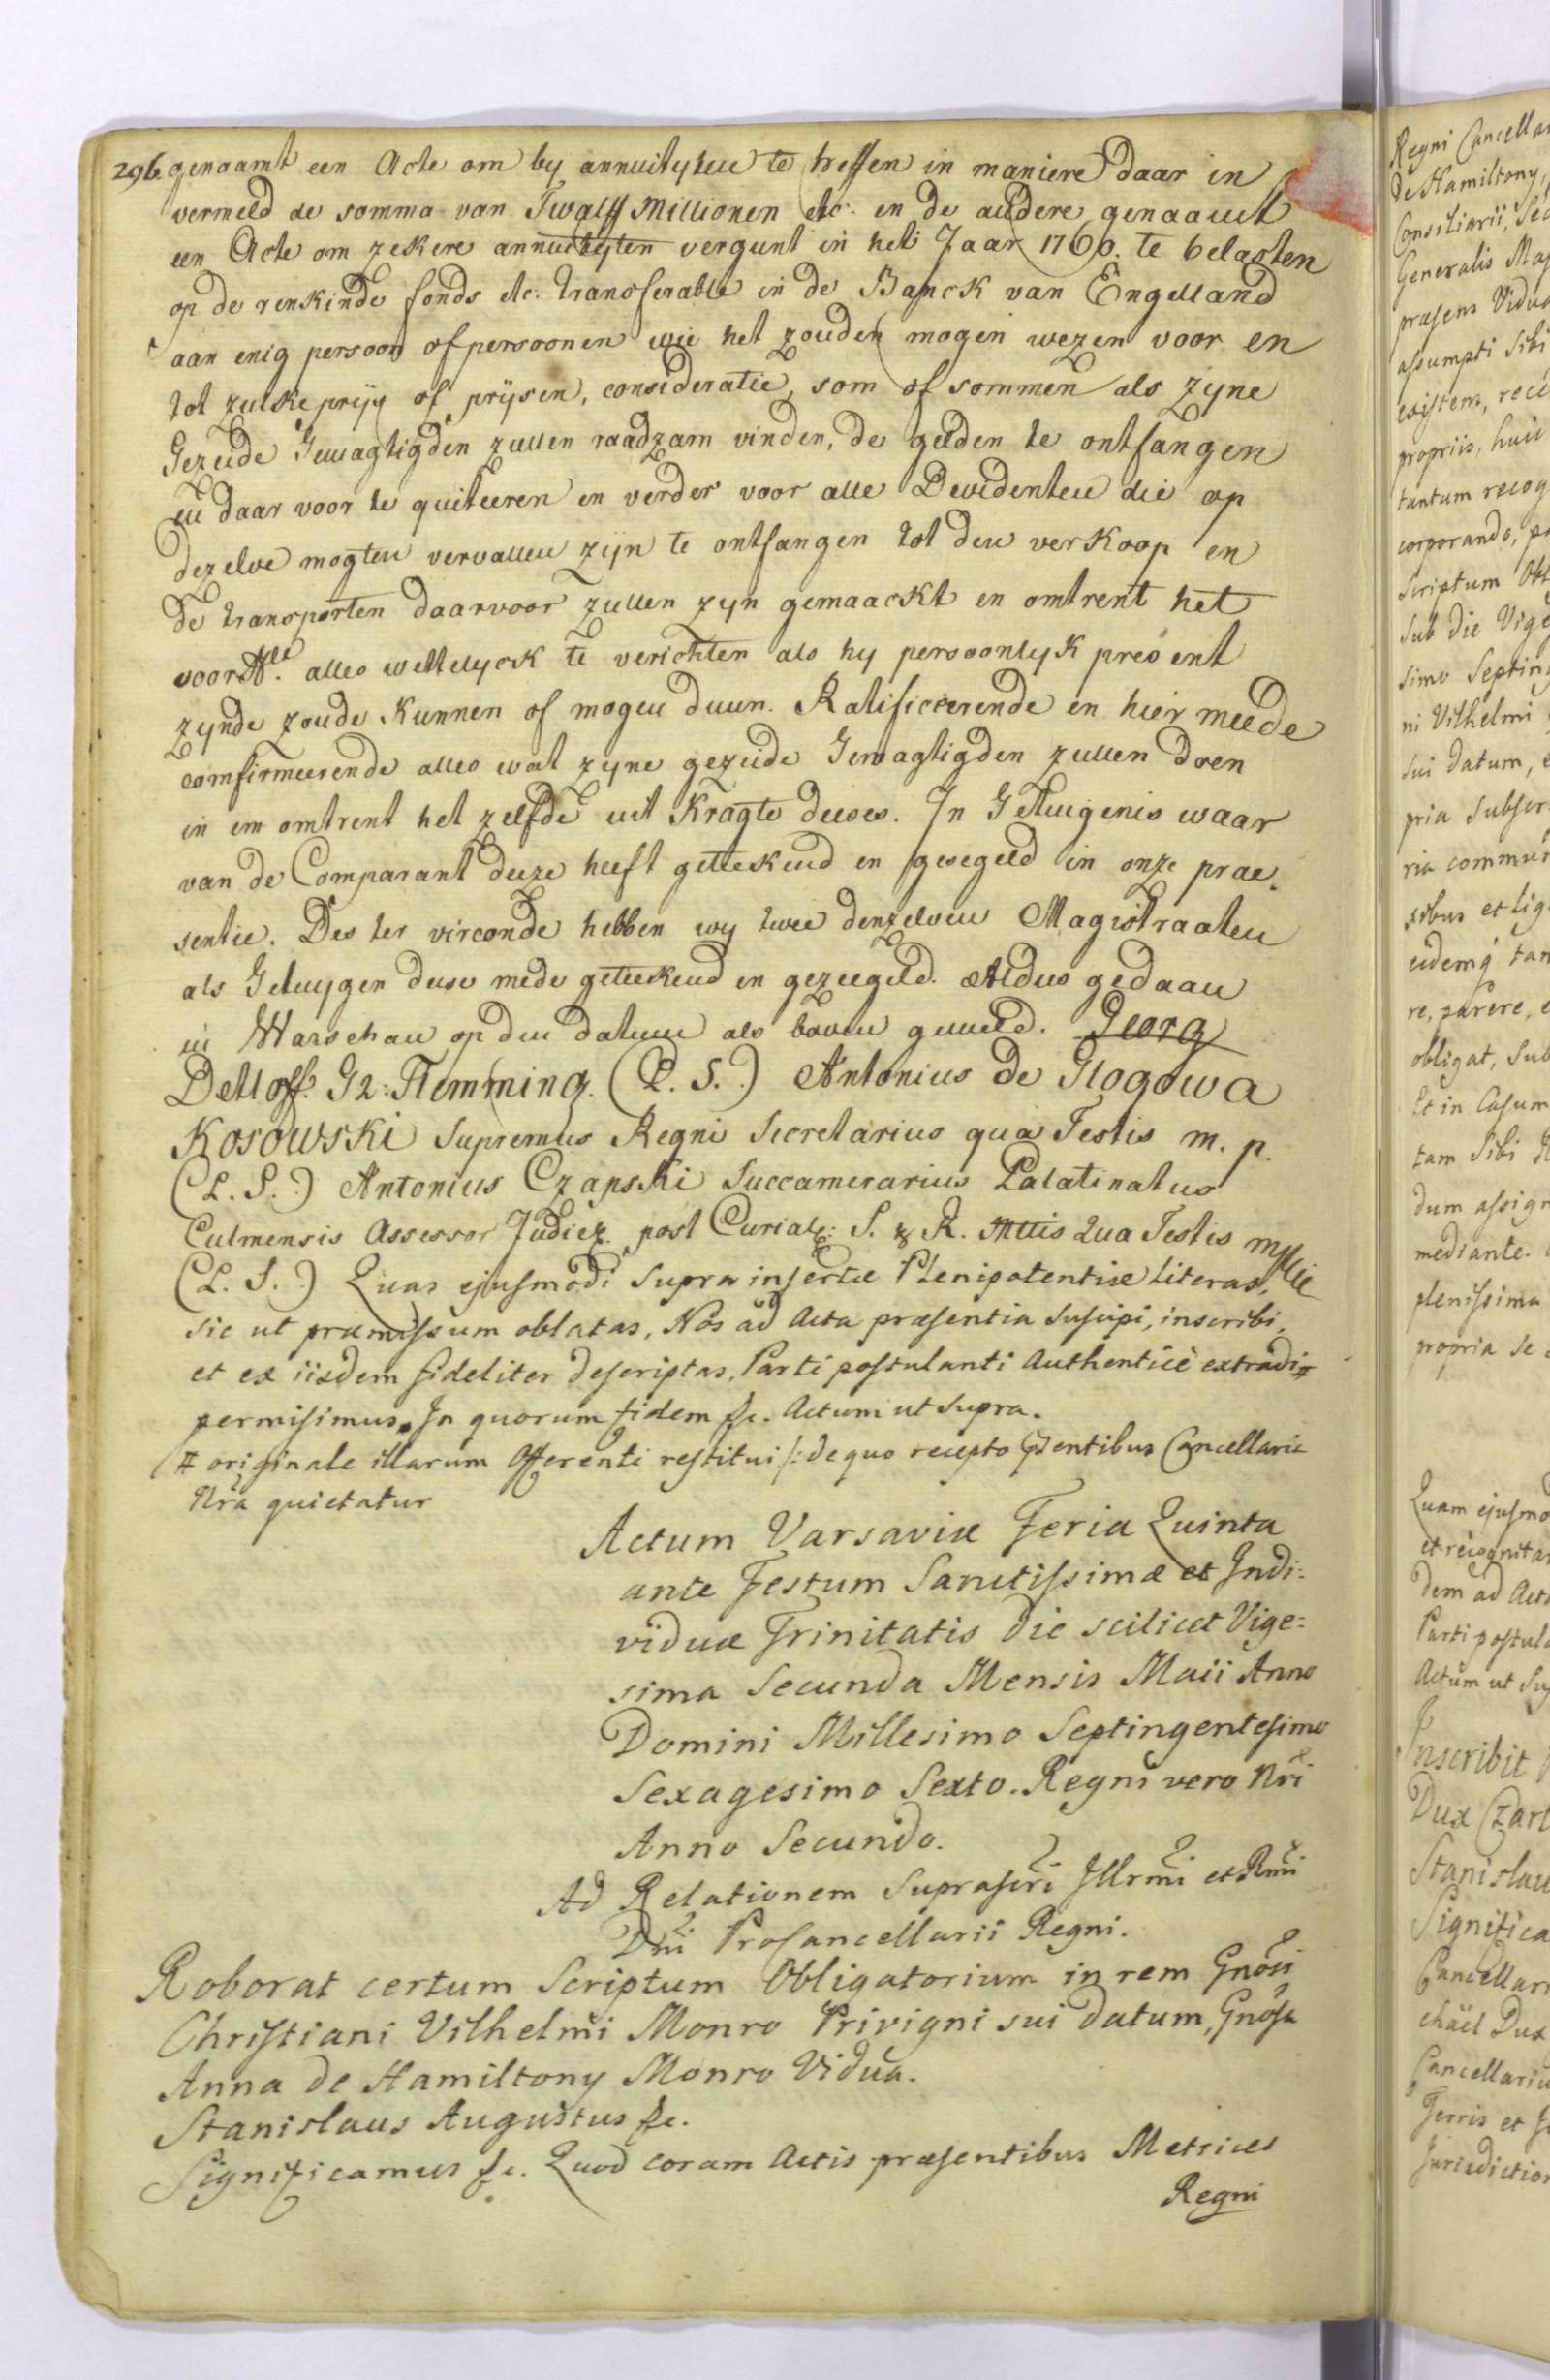 296 genaamt een Acte om by annuityten te heffen in maniere daar in
vermeld de somma van Twalff Millionen etc: en de andere genaamt
een Acte om zekere annuityten vergunt in het Jaar 1760. te belasten
op de renkinde fonds etc: transferable in de Banck van Engelland
aan enig persoon of persoonen wie het zouden mogen wezen voor en
tot zulke prijy of prijsen, consideratie, som of sommen als zyne
Gezeide Gemagtigden zullen raadzam vinden, de gelden te ontfangen
en daar voor te quiteeren en verder voor alle Devidenten die op
dezelve mogten vervallen zijn te ontfangen tot den verkoop en
de transporten daarvoor zullen zyn gemaackt en omtrent het
voor alles wettelyck te verichten als hy persoonlyk present
zynde zoude kunnen of mogen duun. Ratificeerende en hier meede
comfirmeerende alles wat zyne gezeide Gemagtigden zullen doen
in em omtrent het zelfde uit Kragte deeses. In Getuigenis waar
van de Comparant deeze heeft geteekend en gesegeld in onze prae,
sentie. Des ter virconde hebben wy twee denzelven Magistraaten
als Getuygen dese mede geteekend en gezeegeld. Aldus gedaan
in Warschau op den datum als boven gemeld. Georg
Detloff. Gz: Flemming. (L. S.) Antonius de Glogowa
Kosowski Supremus Regni Secretarius qua Testis m. p.
(L. S.) Antonius Czapski Succamerarius Palatinatus
Culmensis Assessor Judicz. post Curial: S. R. Mttis Qua Testis mp
(L. S.) Quas ejusmodi supra insertæ Plenipotentiæ literas,
sic ut præmissum oblatas, Nos ad Acta præsentia suscipi, inscribi,
et ex iisdem fideliter descriptas, Parti postulanti Authenticè extradi #
permisimus. In quorum fidem &c. Actum ut supra.
# originale illarum Offerenti restitui /: de quo recepto Psentibus Cancellaria
Nra quietatur
Actum Varsaviæ Feria Quinta
ante Festum Sanctissimæ et Indi:
viduæ Trinitatis die scilicet Vige:
sima Secunda Mensis Maii Anno
Domini Millesimo Septingentesimo
Sexagesimo Sexto. Regni vero Nri
Anno Secundo.
Ad Relationem Suprascri Illrmi et Rmi
Dni Procancellarii Regni.
Roborat certum Scriptum Obligatorium in rem Gnosi
Christiani Vilhelmi Monro Privigni sui datum, Gnosa
Anna de Hamiltony Monro Vidua.
Stanislaus Augustus &c.
Significamus &c. Quod coram Actis præsentibus Metrices
Regni
Regni Cancellar
de Hamiltony,
Consiliarii, Sec
Generalis Maj
præsens Vidua
assumpti sibi
existens, rece
propriis, huic
tantum recog
corporando, pr
Scriptum Obl
Sub die Vige
simo Septing
ni Vilhelmi
sui datum, e
pria subscr
ria commun
xibus et lig
eidemq tan
re, parere, e
obligat, sub
Et in Casum
tam Sibi
dum assign
mediante.
plenissima
propria se
Quam ejusmo
et recognitam
dem ad Acta
Parti postula
Actum ut Sup
Inscribit
Dux Czart
Stanislau
Significa
Cancellari
chäel Dux
Cancellariu
Terris et
Jurisdiction